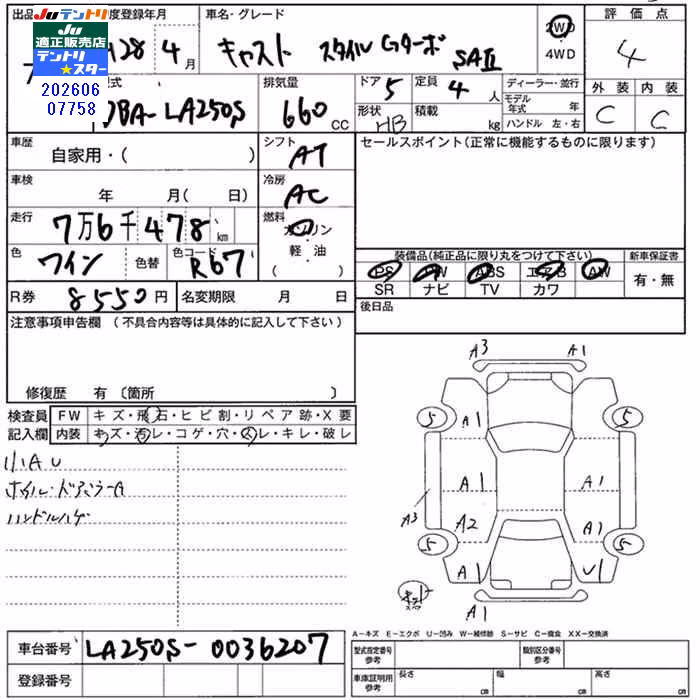 出品 度登録年月 車名・グレード 評価点
JUテントリ
JU適正販売店
テントリ★スター
202606
07758
28 4月 キャスト スタイルGターボ SAⅡ 2WD 4WD 4
型式 排気量 ドア 5 定員 4人 ディーラー・並行 外装 内装
DBA-LA250S 660cc 形状 HB 積載 kg モデル年式 年 ハンドル 左・右 C C
車歴 自家用・( ) シフト AT セールスポイント(正常に機能するものに限ります)
車検 年 月( 日) 冷房 AC
走行 7万6千478km 燃料 ガソリン 軽・油
装備品(純正品に限り丸をつけて下さい) 新車保証書
色 ワイン 色替 色コード R67 PS PW ABS エアB AW 有・無
SR ナビ TV カワ
R券 8550円 名変期限 月 日 後日品
注意事項申告欄 (不具合内容等は具体的に記入して下さい)
修復歴 有〔箇所 〕
検査員 FW キズ・飛石・ヒビ割・リペア跡・X要
記入欄 内装 キズ・汚レ・コゲ・穴・スレ・キレ・破レ
小AU
ホイル・ドアミラーA
ハンドルハゲ
A3 A1
5 A1 5
A1 A1
A3 A2 A1
5 A1 U1 5
A1
A-キズ E-エクボ U-凹み W-補修跡 S-サビ C-腐食 XX-交換済
車台番号 LA250S-0036207 型式指定番号 参考 類別区分番号 参考
登録番号 車庫証明用 参考 長さ cm 幅 cm 高さ cm